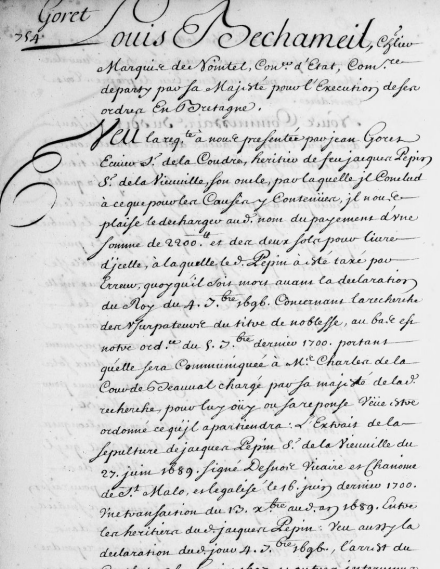 Goret
754
Louis Bechameil, Ch.lier
Marquis de Nointel, Con.er d'Etat, Com.re
departy par sa Majesté pour l'Execution de ses
ordres En Bretagne.
Veu la req.te à nous presentée par jean Goret
Ecuier S.r de la Coudre, heritier de feu jacques Pepin
S.r de la Vieuville, son oncle, par laquelle jl Conclud
à ce que pour les Causes y Contenües, jl nous
plaise le decharger aud. nom du payement d'vne
somme de 2200.tt et des deux sols pour livre
d'jcelle, à laquelle led. Pepin à esté taxé par
Erreur, quoyqu'il soit mort auant la declaration
du Roy du 4. 7.bre 1696. Concernant la recherche
des vsurpateurs du titre de noblesse, au bas est
notre ord.ce du 5. 7.bre dernier 1700. portant
qu'elle sera Communiquée à M.e Charles de la
Cour de Beauval chargé par sa majesté de la d.
recherche, pour luy oüy ou sa reponse Veüe estre
ordonné ce qu'jl apartiendra: L'Extrait de la
sepulture de jacques Pepin S.r de la Vieuville du
27. juin 1689. signé Desnos Vicaire et Chanoine
de S.t Malo, et legalisé le 16. juin dernier 1700.
Vne transaction du 13. x.bre aud. an 1689. Entre
les heritiers dud. jacques Pepin: Veu aussy la
declaration dud. jour 4. 7.bre 1696, l'arrest du